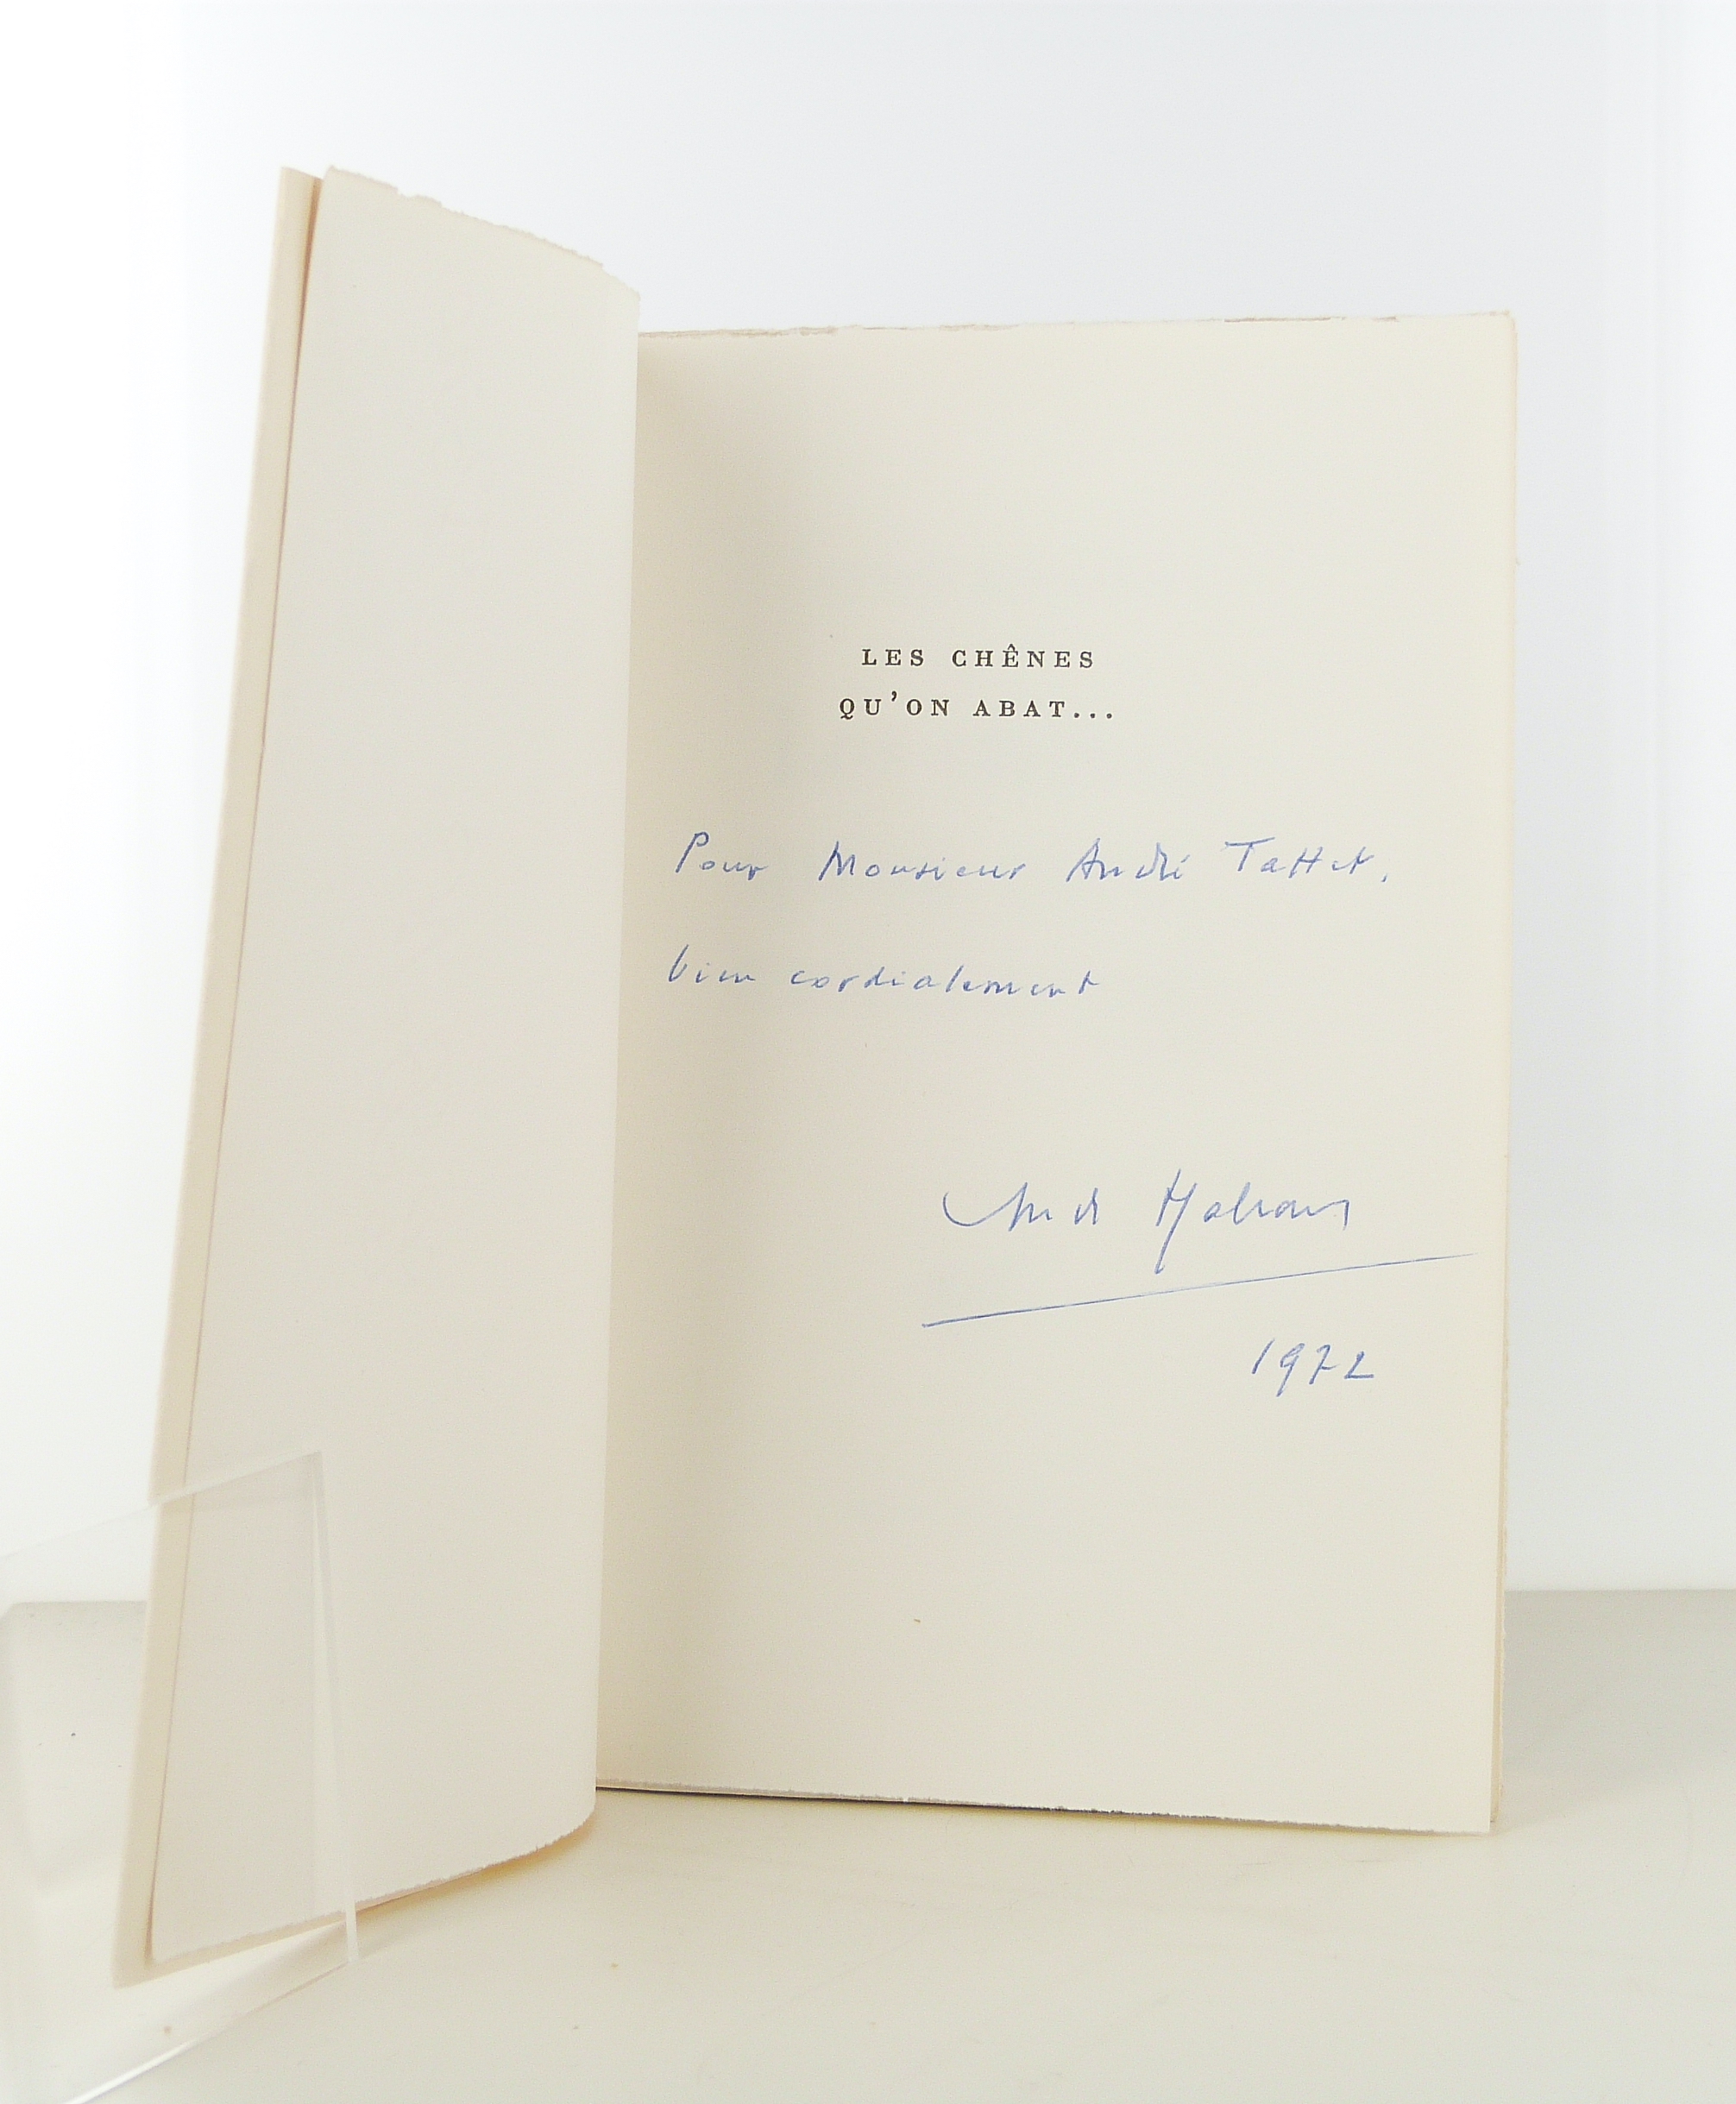 LES CHÊNES
QU'ON ABAT...
Pour Monsieur André Tattet,
bien cordialement
André Malraux
1972